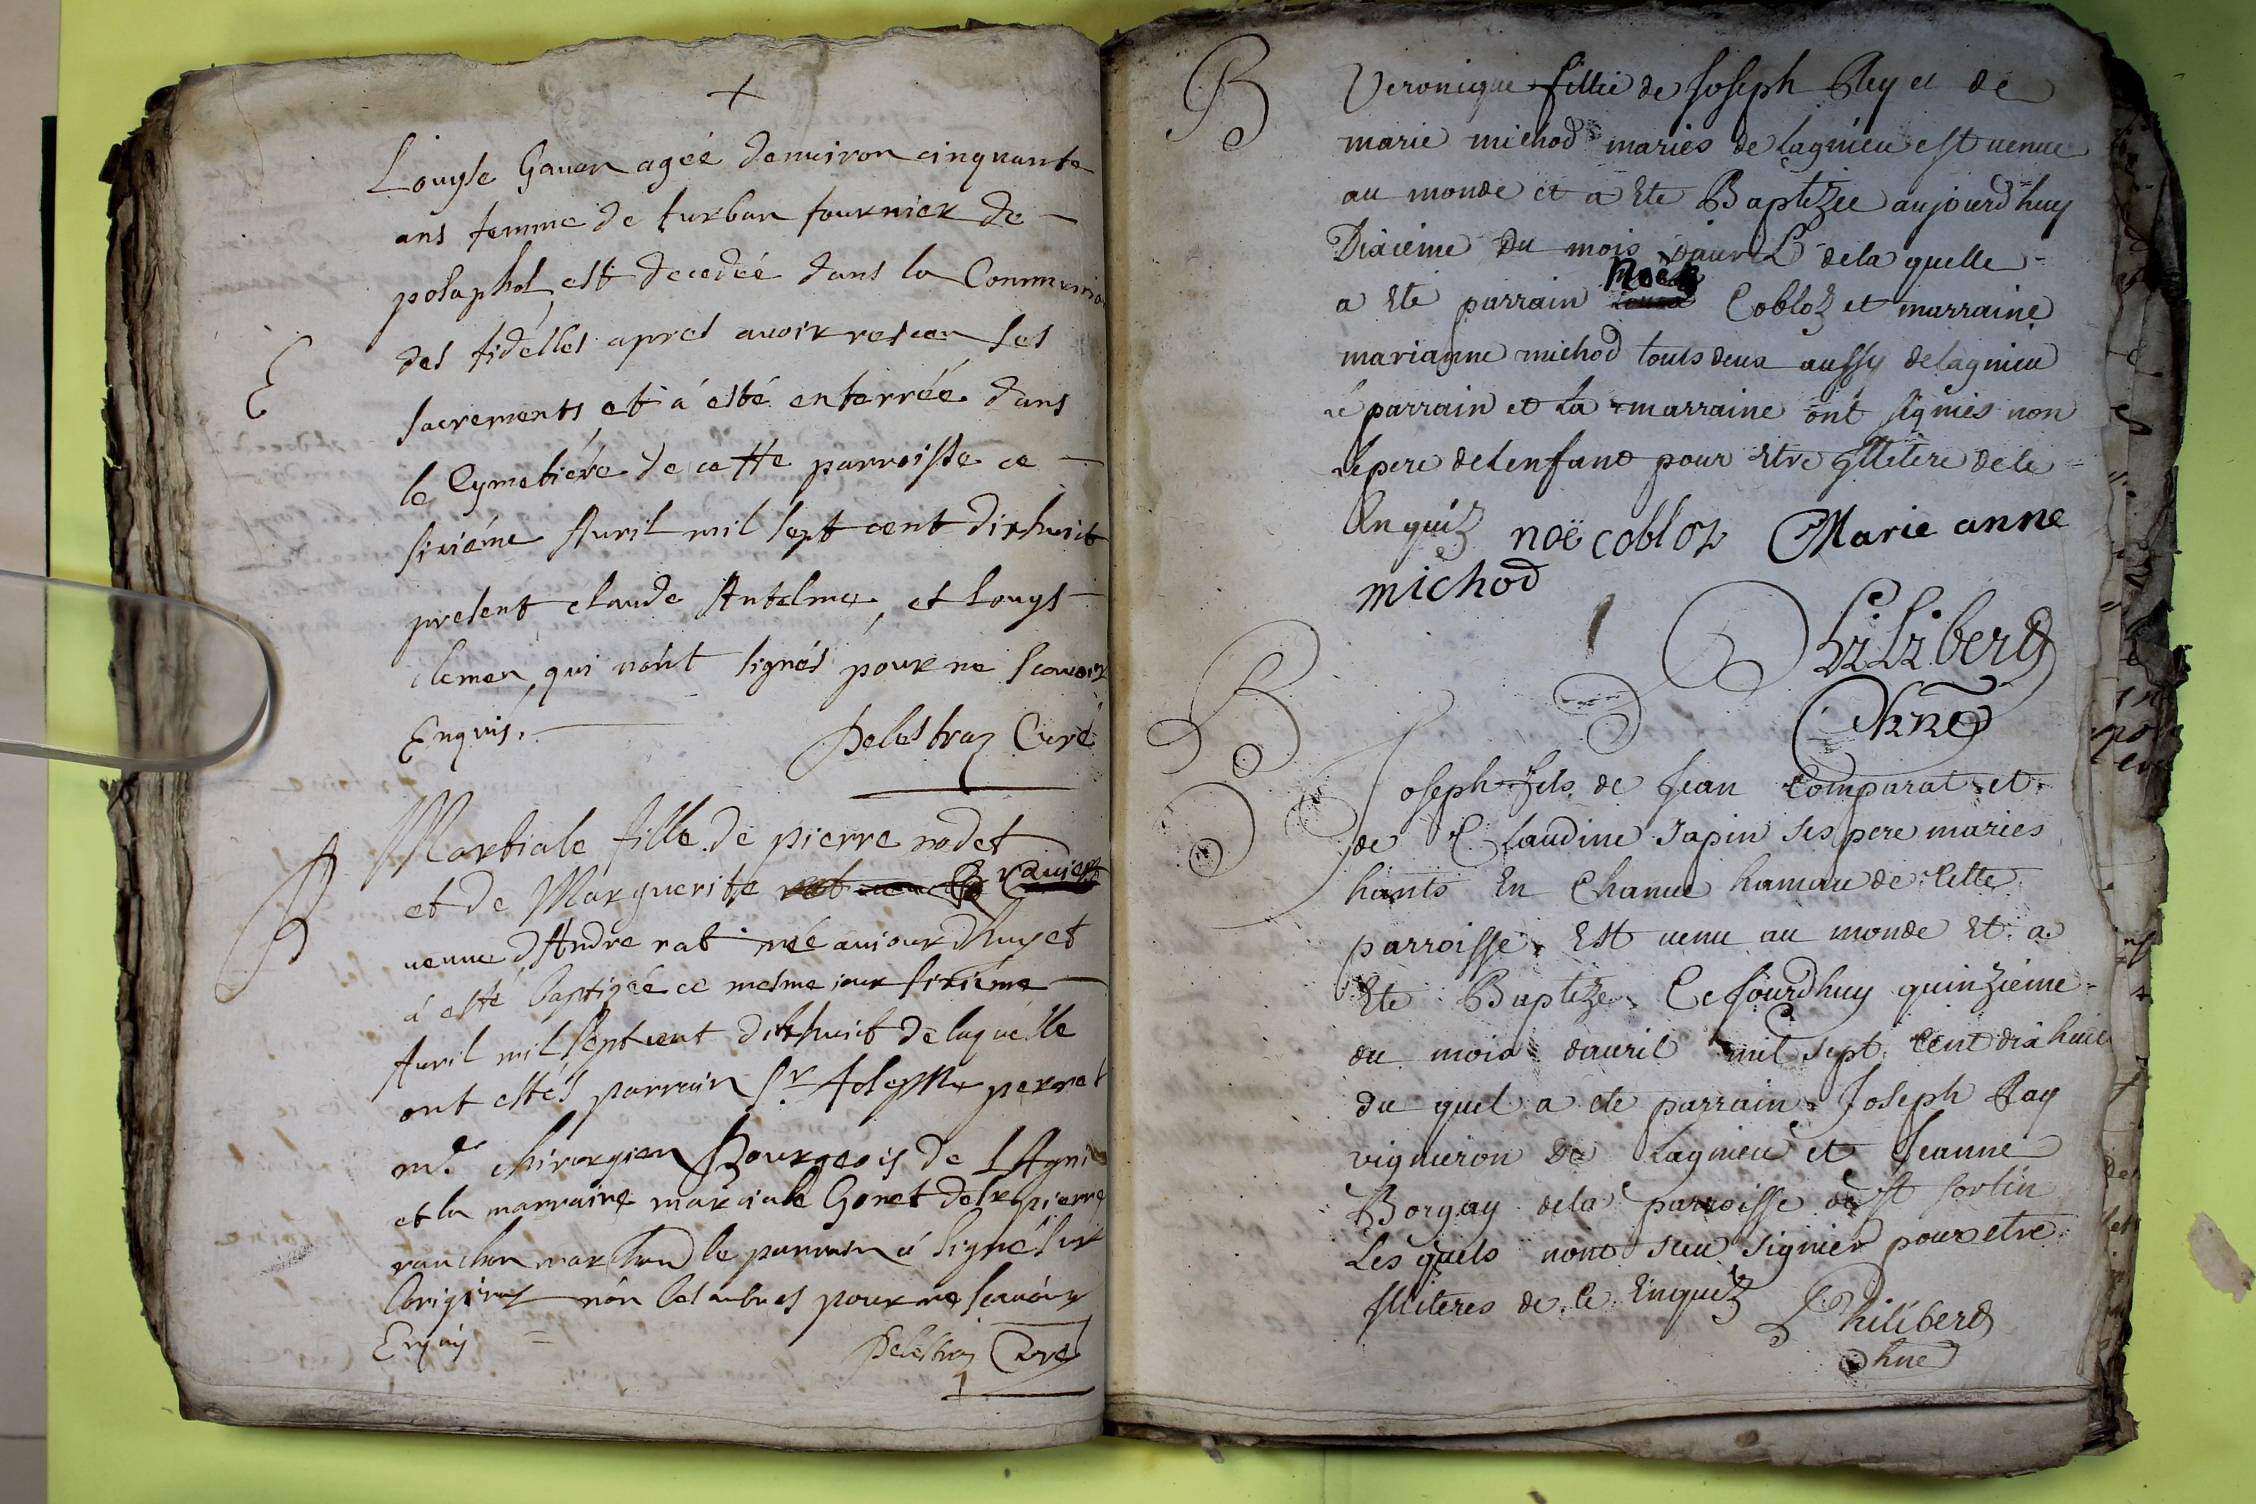 +
Louyse Gauan agéé denuiron cinquante
ans femme de turban fournier de
posaphol est decedéé dans la Communion
des fidelles apres auoir receu ses
E
sacrements et á esté enterréé dans
le Cymetiére de cette parroisse ce
sixiéme Auril mil sept cent dixhuit
present claude Antelme, et Louys
clemen, qui nónt signés pour ne scauoir
Enquis. Pelestraz Curé
B
Martiale fille de pierre nodet
et de Marguerite rauier
ueuue d'Andre rat née auiourdhuy et
á esté baptiséé ce mesme iour sixiéme
Auril mil sept cent dixhuit de laquelle
ont estés parrain Sr. Joseph pernet
mr. chirorgien Bourgeois de LAgni
et la marraine marciale Goret de pierre
ranchon marchand le parrain á signé sur
loriginal nón les autres pour ne scauóir
Enquis Pelestraz Curé
B
Veronique fillie de Joseph Rey et de
marie michod maries de Lagnieu est uenue
au monde et a Ete Baptizée aujourdhuy
Dixieme du mois dauril de la quelle
a Ete parrain Noel Cobloz et marraine
marianne michod touts deux aussy de lagnieu
le parrain et La marraine ont signiés non
le pere de lenfant pour etre illitere de ce
Enquiz noë cobloz Marie anne
michod
Philiberd
B
Joseph fils de Jean Comparat et
de Claudine Sapin ses pere maries
hants En Chanue hamau de Cette
parroisse Est uenu au monde Et a
Ete Baptize Ce Jourdhuy quinzieme
du mois dauril mil sept Cent dix huit
du quel a ete parrain Joseph Ray
vignieron de Lagnieu et Jeanne
Borgay de la parroisse de st sorlin
Les quels nont sceu signier pour etre
illiteres de ce Enquiz Philiberd